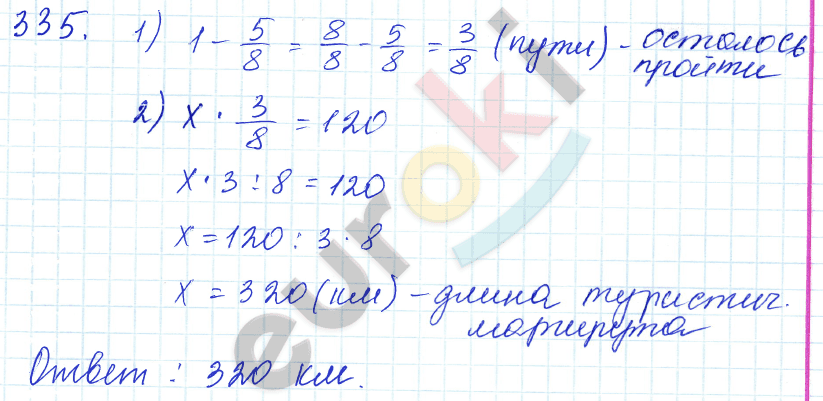 335. 1) 1 - 5/8 = 8/8 - 5/8 = 3/8 (пути) - осталось
пройти
2) x · 3/8 = 120
x · 3 : 8 = 120
x = 120 : 3 · 8
x = 320 (км) - длина туристич.
маршрута
Ответ : 320 км.
euroki